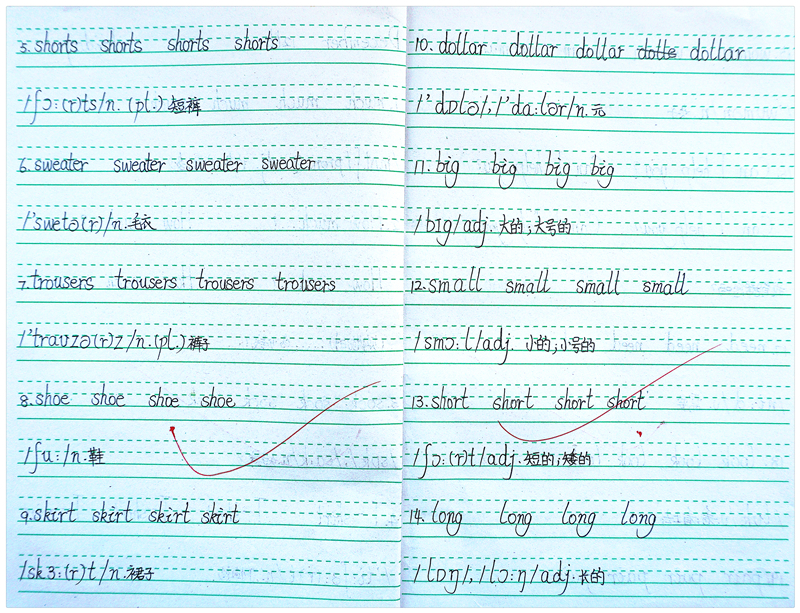 5. shorts shorts shorts shorts
/ʃɔ:(r)ts/n.(pl.)短裤
6. sweater sweater sweater sweater
/'swetə(r)/n.毛衣
7. trousers trousers trousers trousers
/'traʊzə(r)z/n.(pl.)裤子
8. shoe shoe shoe shoe
/ʃu:/n.鞋
9. skirt skirt skirt skirt
/skɜ:(r)t/n.裙子
10. dollar dollar dollar dollar
/'dɒlə/,/'da:lər/n.元
11. big big big big
/bɪg/adj.大的;大号的
12. small small small small
/smɔ:l/adj.小的;小号的
13. short short short short
/ʃɔ:(r)t/adj.短的;矮的
14. long long long long
/lɒŋ/,/lɔ:ŋ/adj.长的